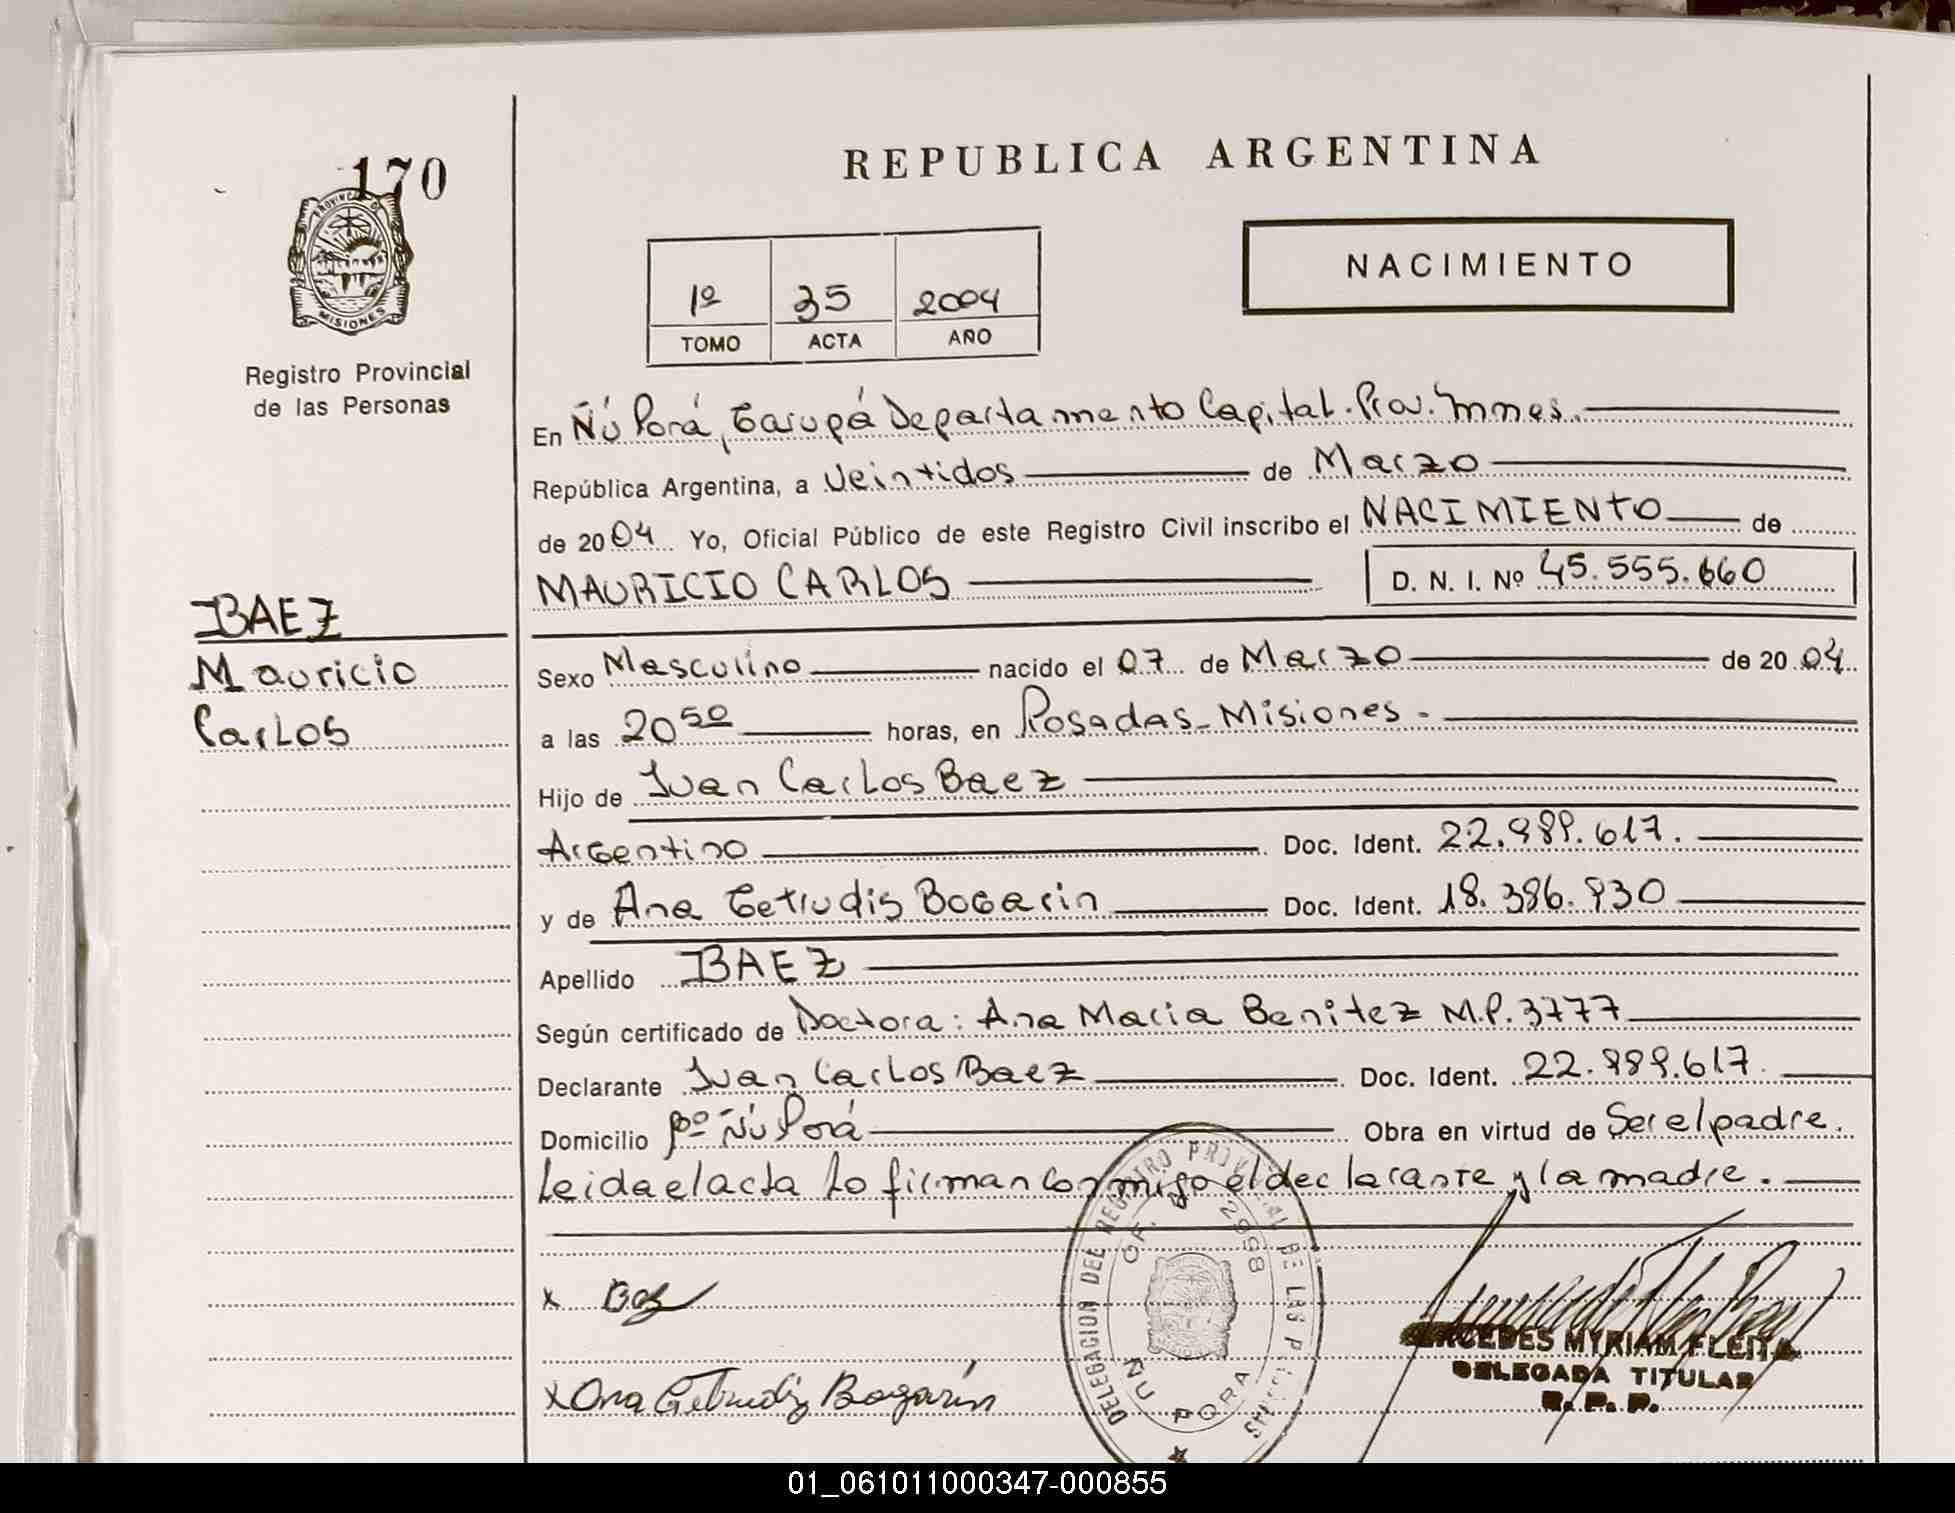 170
PROVINCIA DE
MISIONES
Registro Provincial
de las Personas
REPUBLICA ARGENTINA
NACIMIENTO
1º 35 2004
TOMO ACTA AÑO
En Ñú Porá, Garupá Departamento Capital. Prov. Mnes.
República Argentina, a Veintidos de Marzo
de 2004 Yo, Oficial Público de este Registro Civil inscribo el NACIMIENTO de
MAURICIO CARLOS D. N. I. Nº 45.555.660
BAEZ
Mauricio
Carlos
Sexo Masculino nacido el 07 de Marzo de 2004
a las 20 50 horas, en Posadas - Misiones -
Hijo de Juan Carlos Baez
Argentino Doc. Ident. 22.989.617.
y de Ana Getrudis Bogarin Doc. Ident. 18.386.930
Apellido BAEZ
Según certificado de Doctora: Ana Maria Benitez M.P. 3777
Declarante Juan Carlos Baez Doc. Ident. 22.989.617.
Domicilio Bº Ñú Porá Obra en virtud de Ser el padre.
Leida el acta lo firman conmigo el declarante y la madre.
DELEGACION DEL REGISTRO PROVINCIAL DE LAS
OF. 2998
ÑU PORA
x
x Ana Getrudis Bogarín
MERCEDES MYRIAM FLEITA
DELEGADA TITULAR
R. P. P.
01_061011000347-000855